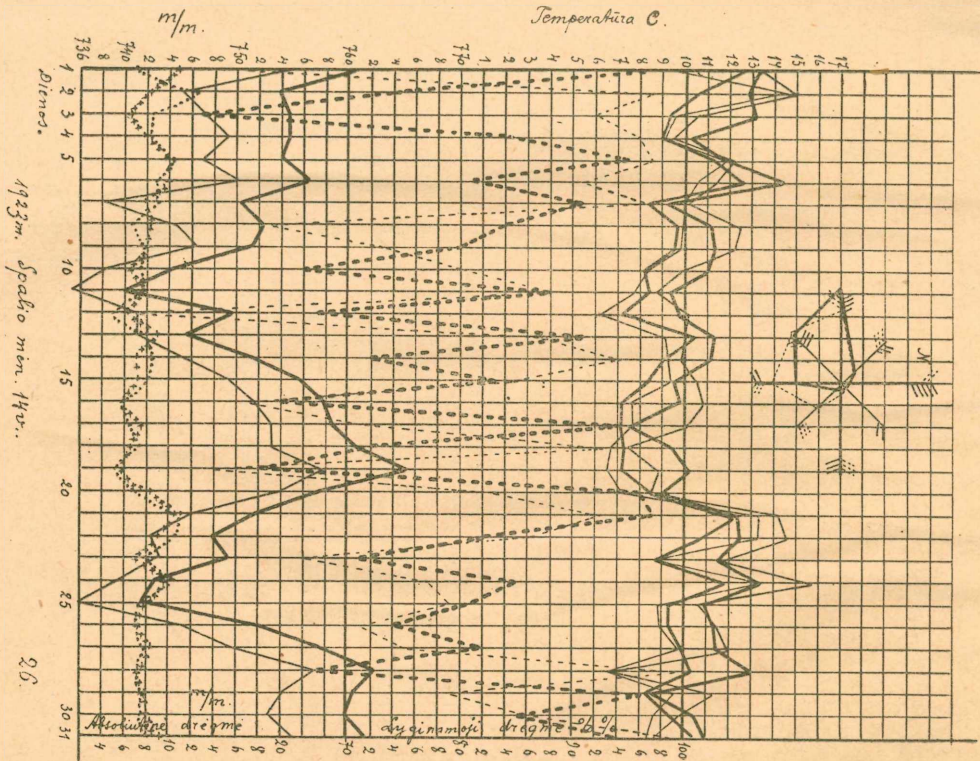 m/m.
Temperatūra C.
736 740 2 4 750 4 6 8 760 2 4 6 8 770 1 2 3 4 5 6 7 8 9 10 11 12 13 14 15 16 17
Dienos.
1
2
3
4
5
10
15
20
25
30
31
N
1923m. Spalio mėn. 14v.
26.
m/m.
Absoliutinė drėgmė
Lyginamoji drėgmė % %
4 6 8 10 2 4 6 8 20 70 2 4 6 8 80 2 4 6 8 90 2 4 6 8 100